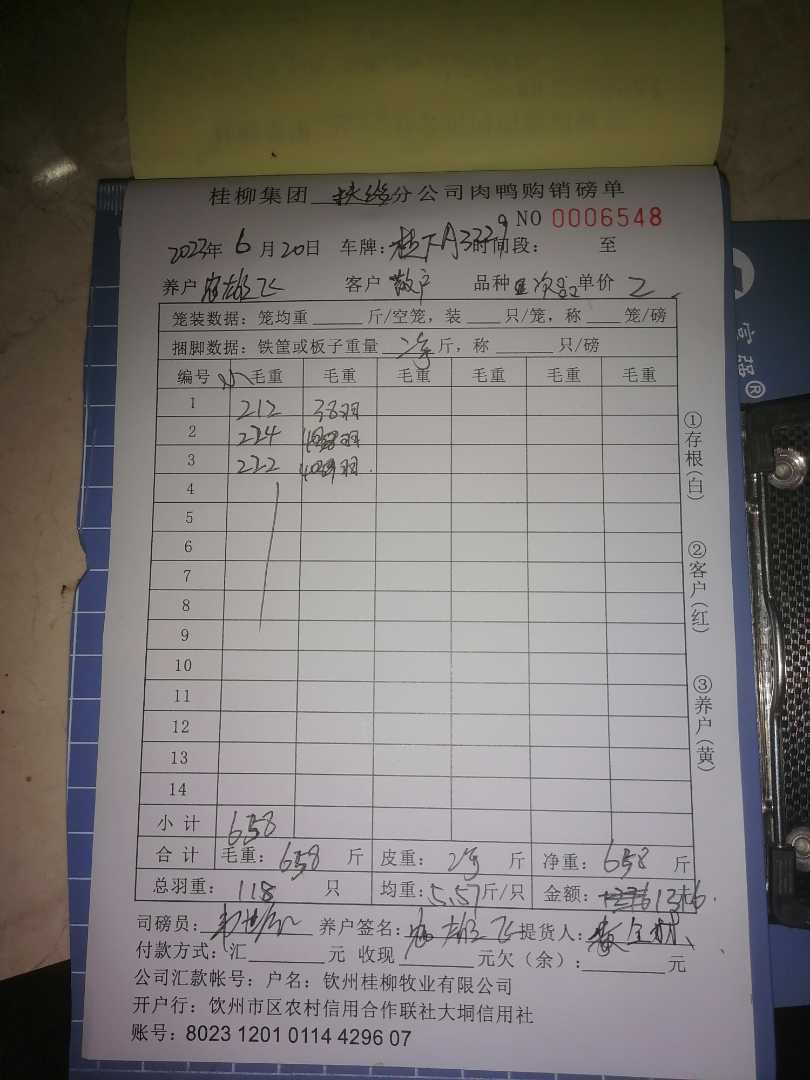 桂柳集团 分公司肉鸭购销磅单
NO 0006548
2023年 6月20日 车牌: A3229 时间段: 至
养户 雄飞 客户 散户 品种 次 单价 2
笼装数据: 笼均重 斤/空笼, 装 只/笼, 称 笼/磅
捆脚数据: 铁筐或板子重量 斤, 称 只/磅
编号 毛重 毛重 毛重 毛重 毛重 毛重
1 212 38羽
2 224 羽
3 222 羽
4
5
6
7
8
9
10
11
12
13
14
小计 658
合计 毛重: 658 斤 皮重: 斤 净重: 658 斤
总羽重: 118 只 均重: 5.57斤/只 金额: 1316.
司磅员: 养户签名: 雄飞 提货人:
付款方式: 汇 元 收现 元欠(余): 元
公司汇款帐号: 户名: 钦州桂柳牧业有限公司
开户行: 饮州市区农村信用合作联社大垌信用社
账号: 8023 1201 0114 4296 07
①存根(白)
②客户(红)
③养户(黄)
富强®